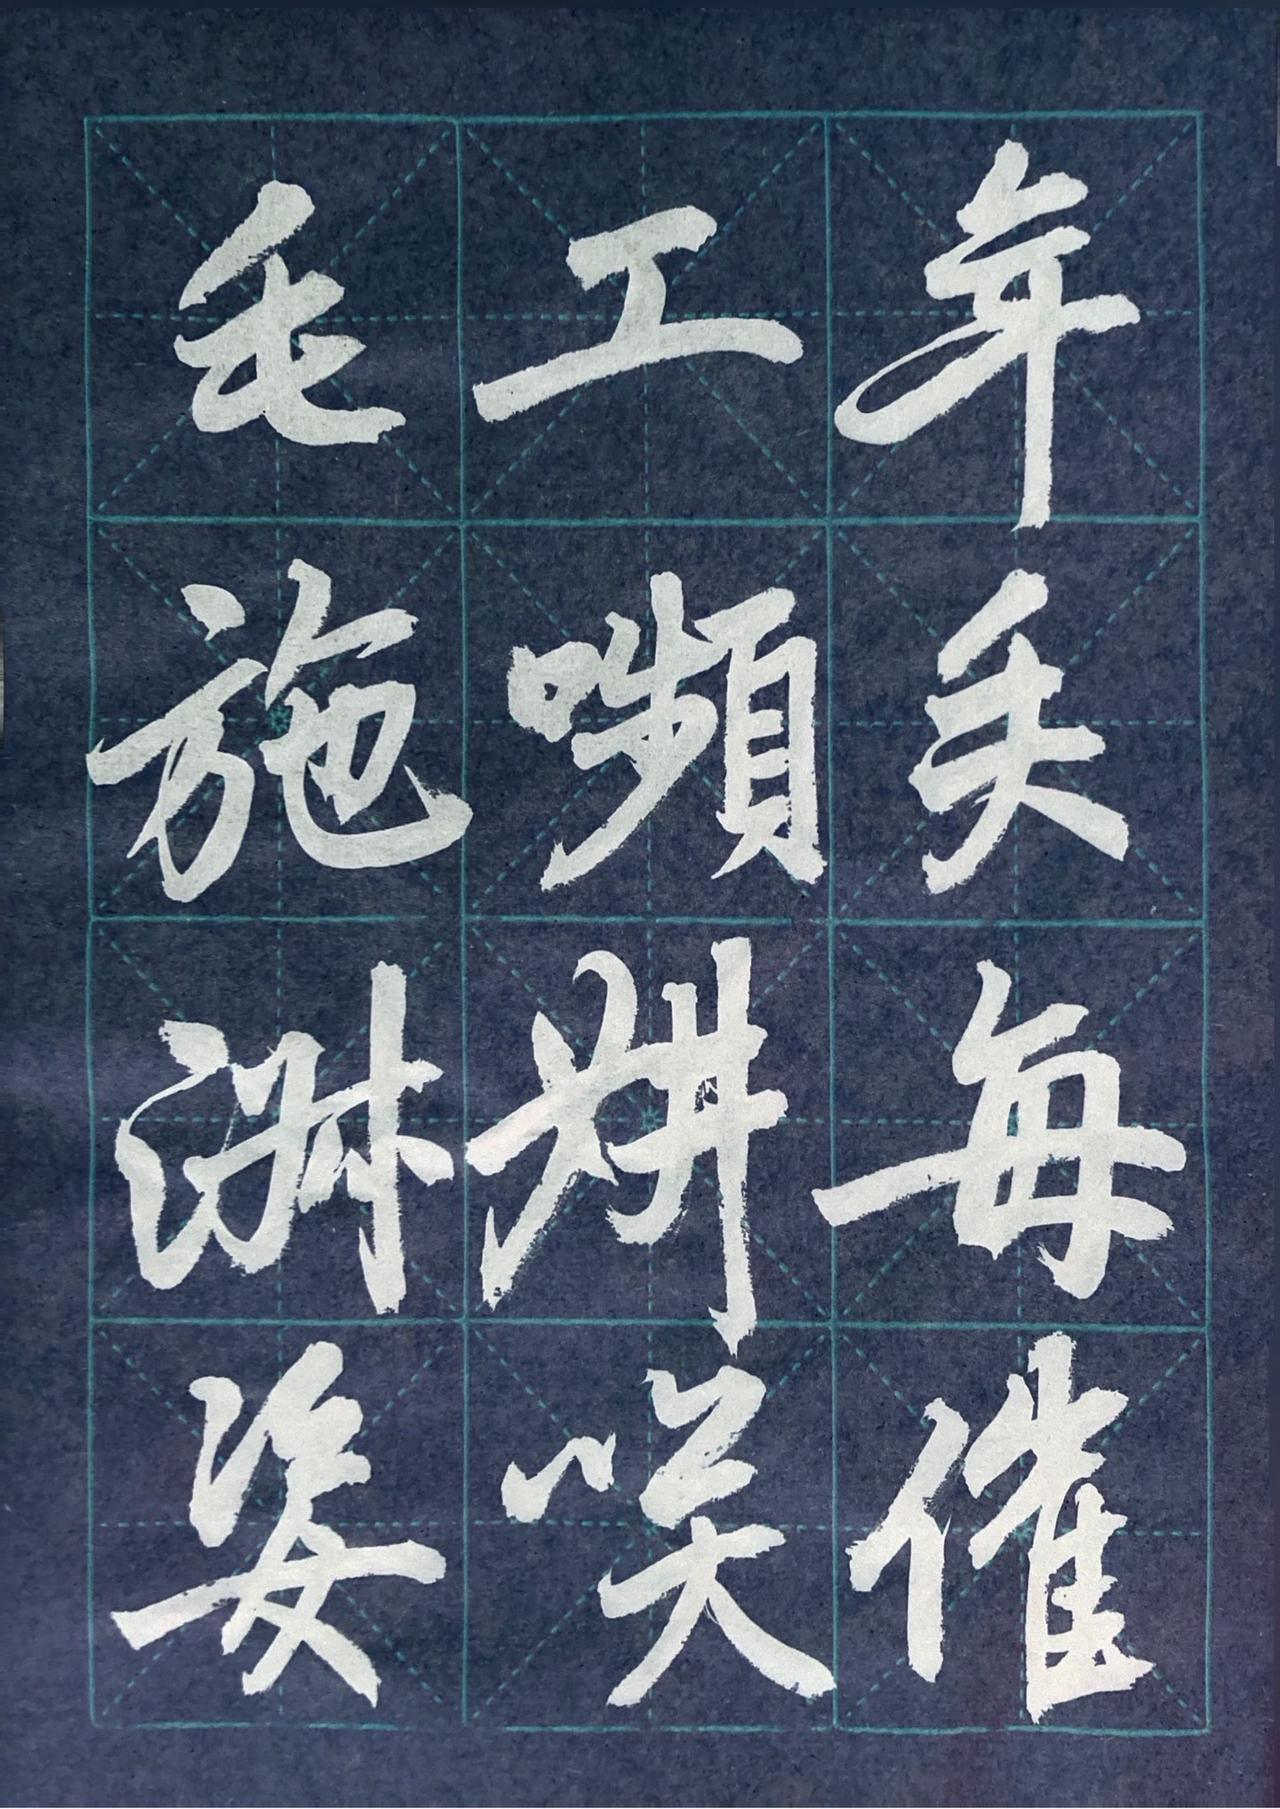 年矢每催
工嚬妍咲
毛施淑姿